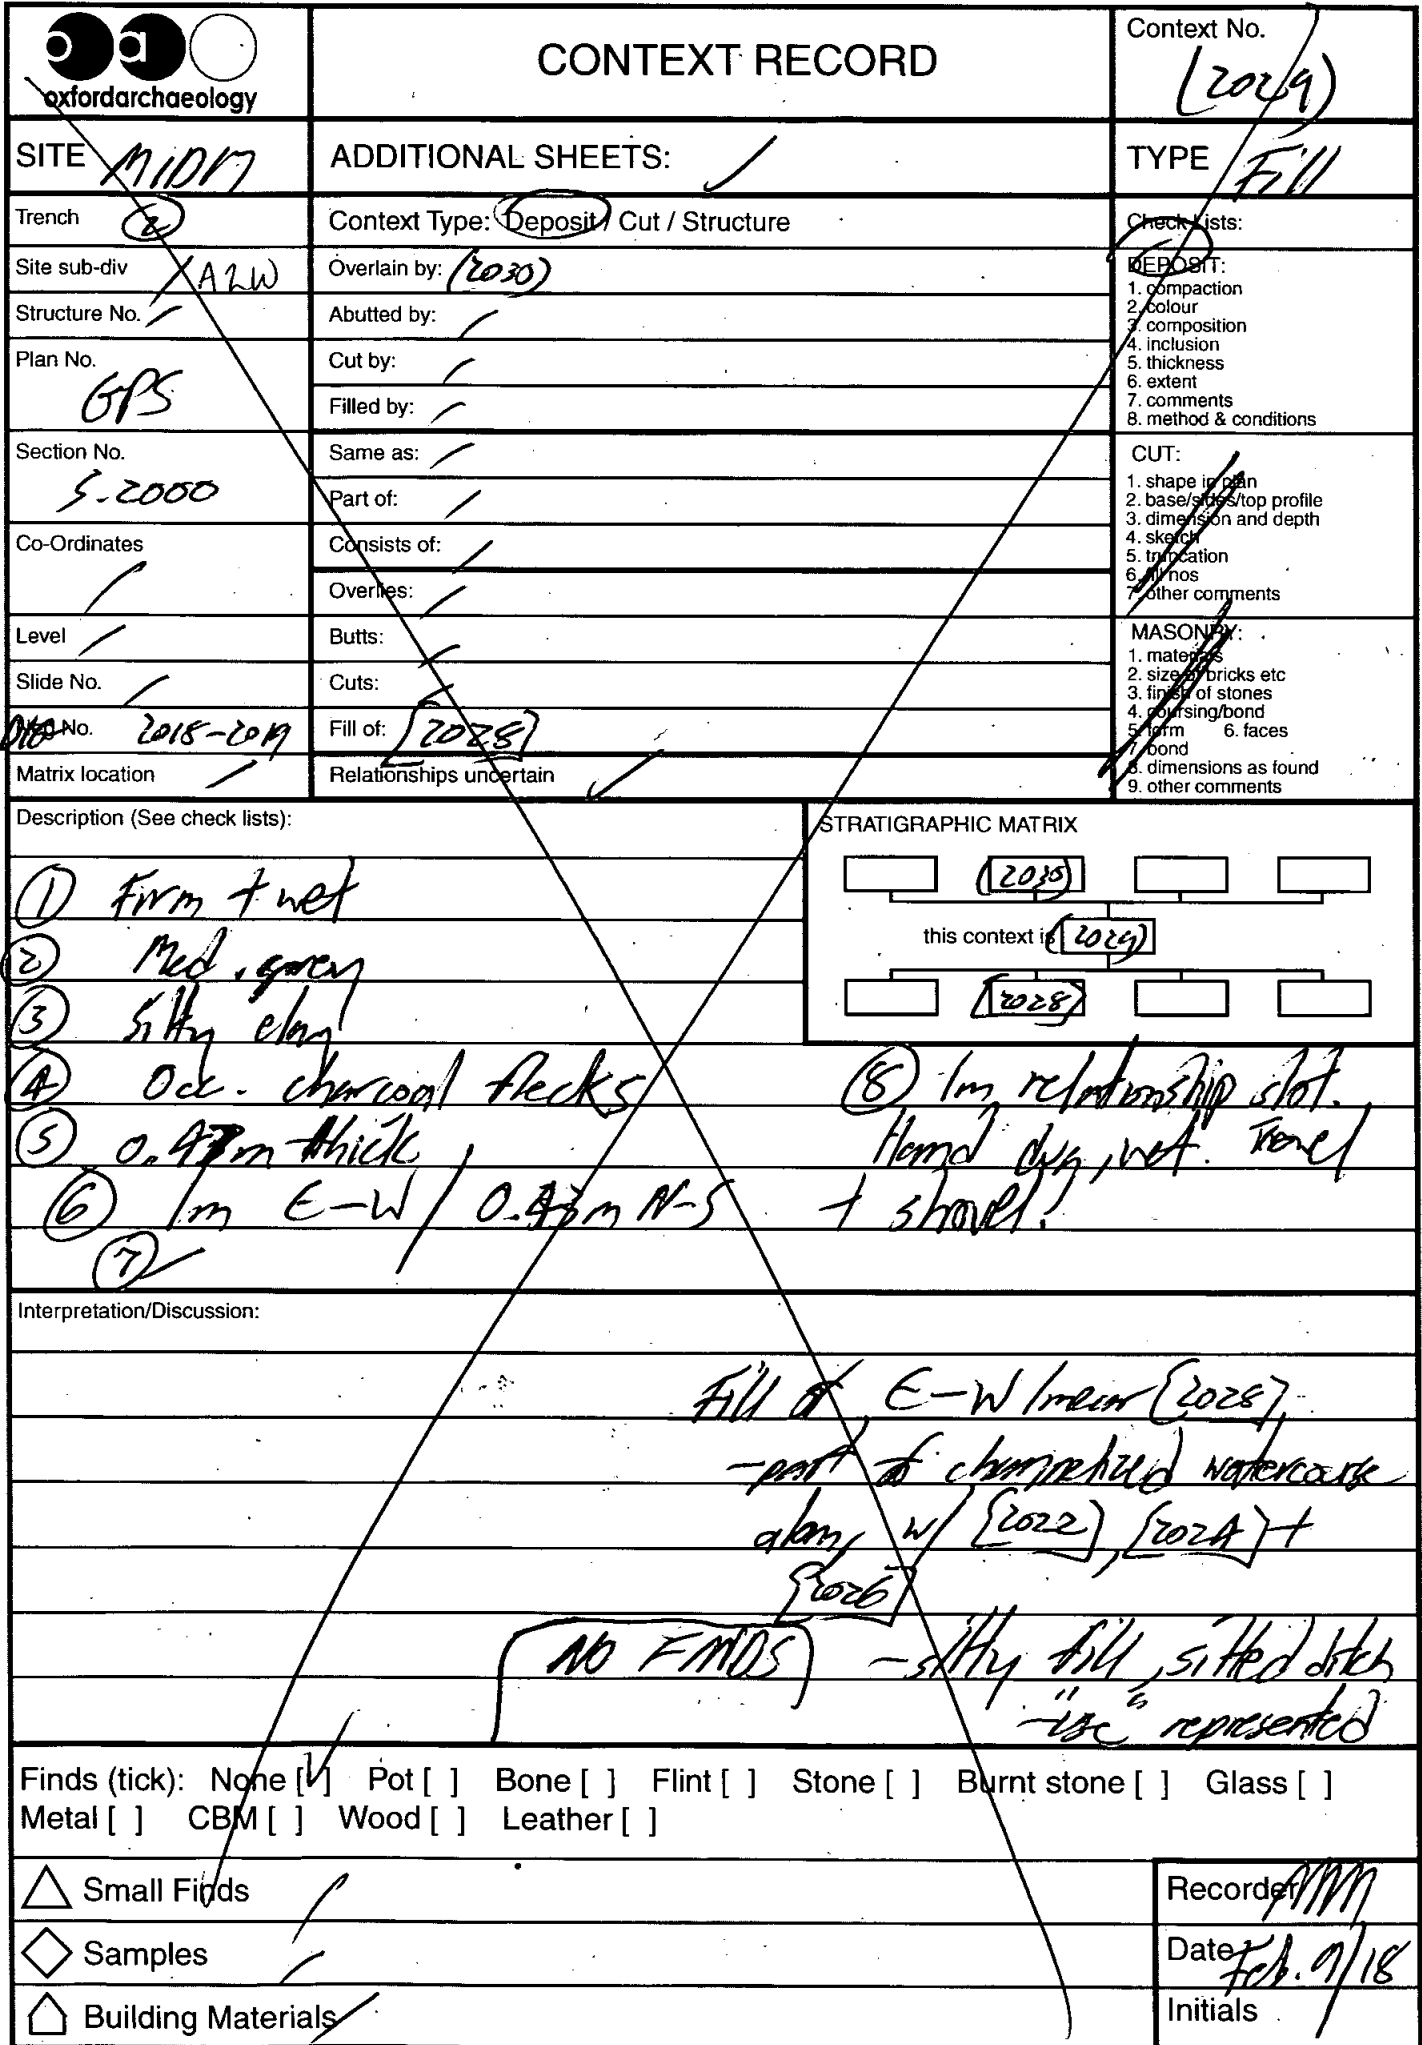 oao
oxfordarchaeology
CONTEXT RECORD
Context No.
(2029)
SITE MIDM
ADDITIONAL SHEETS: /
TYPE Fill
Trench 2
Context Type: Deposit / Cut / Structure
Check Lists:
Site sub-div / A2W
Overlain by: (2030)
Structure No. /
Abutted by: /
Plan No.
GPS
Cut by: /
Filled by: /
Section No.
S.2000
Same as: /
Part of: /
Co-Ordinates
/
Consists of: /
Overlies: /
Level /
Butts: /
Slide No. /
Cuts: /
No. 2018-2019
Fill of: [2028]
Matrix location /
Relationships uncertain /
DEPOSIT:
1. compaction
2. colour
3. composition
4. inclusion
5. thickness
6. extent
7. comments
8. method & conditions
CUT:
1. shape in plan
2. base/sides/top profile
3. dimension and depth
4. sketch
5. truncation
6. fill nos
7. other comments
MASONRY:
1. materials
2. size of bricks etc
3. finish of stones
4. coursing/bond
5. form 6. faces
7. bond
8. dimensions as found
9. other comments
Description (See check lists):
① Firm + wet
② Med. grey
③ Silty clay
④ Occ. charcoal flecks
⑤ 0.43m thick
⑥ 1m E-W / 0.43m N-S
⑦ /
⑧ 1m relationship slot.
Hand dug, wet. Trowel
+ shovel!
STRATIGRAPHIC MATRIX
(2030)
this context is (2029)
[2028]
Interpretation/Discussion:
Fill of E-W linear [2028],
- part of channelized watercourse
along w/ [2022], [2024] +
[2026]
NO FINDS
- silty fill, silted ditch
- "use" represented
Finds (tick): None [✓] Pot [ ] Bone [ ] Flint [ ] Stone [ ] Burnt stone [ ] Glass [ ]
Metal [ ] CBM [ ] Wood [ ] Leather [ ]
Small Finds /
Samples /
Building Materials /
Recorder
Date Feb. 9/18
Initials /